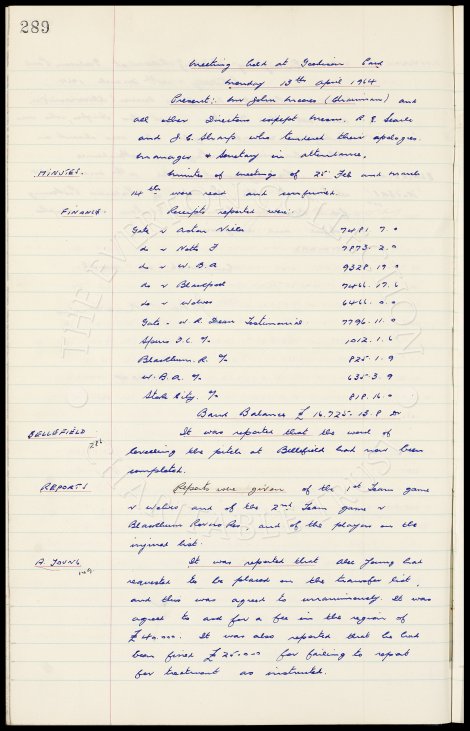 289
Meeting held at Goodison Park
Monday 13th April 1964
Present:. Mr John Moores (Chairman) and
all other Directors except Messrs. R. E. Searle
and J. C. Sharp who tendered their apologies
Manager & Secretary in attendance.
MINUTES. Minutes of meetings of 25 Feb and March
14th were read and confirmed.
FINANCE. Receipts reported were:
Gate v Aston Villa 7481. 7. 0
do v Notts F 7873. 2. 0
do v W. B. A 9328. 19. 0
do v Blackpool 7466. 17. 6
do v Wolves 6466. 0. 0
Gate - W R. Dean Testimonial 7796. 11. 0
Spurs F.C. % 1012. 1. 6
Blackburn. R. % 825. 1. 9
W. B. A. % 635. 3. 9
Stoke City. % 818. 16. 0
Bank Balance £ 16.725. 13. 8 Dr
BELLEFIELD 286 It was reported that the work of
levelling the pitch at Bellefield had now been
completed.
REPORTS Reports were given of the 1st Team game
v Wolves, and of the 2nd Team game v
Blackburn Rovers Res. and of the players on the
injured list.
A. YOUNG It was reported that Alec Young had
requested to be placed on the transfer list,
and this was agreed to unanimously. It was
agreed to ask for a fee in the region of
£40.000. It was also reported that he had
been fined £25.0.0 for failing to report
for treatment as instructed.